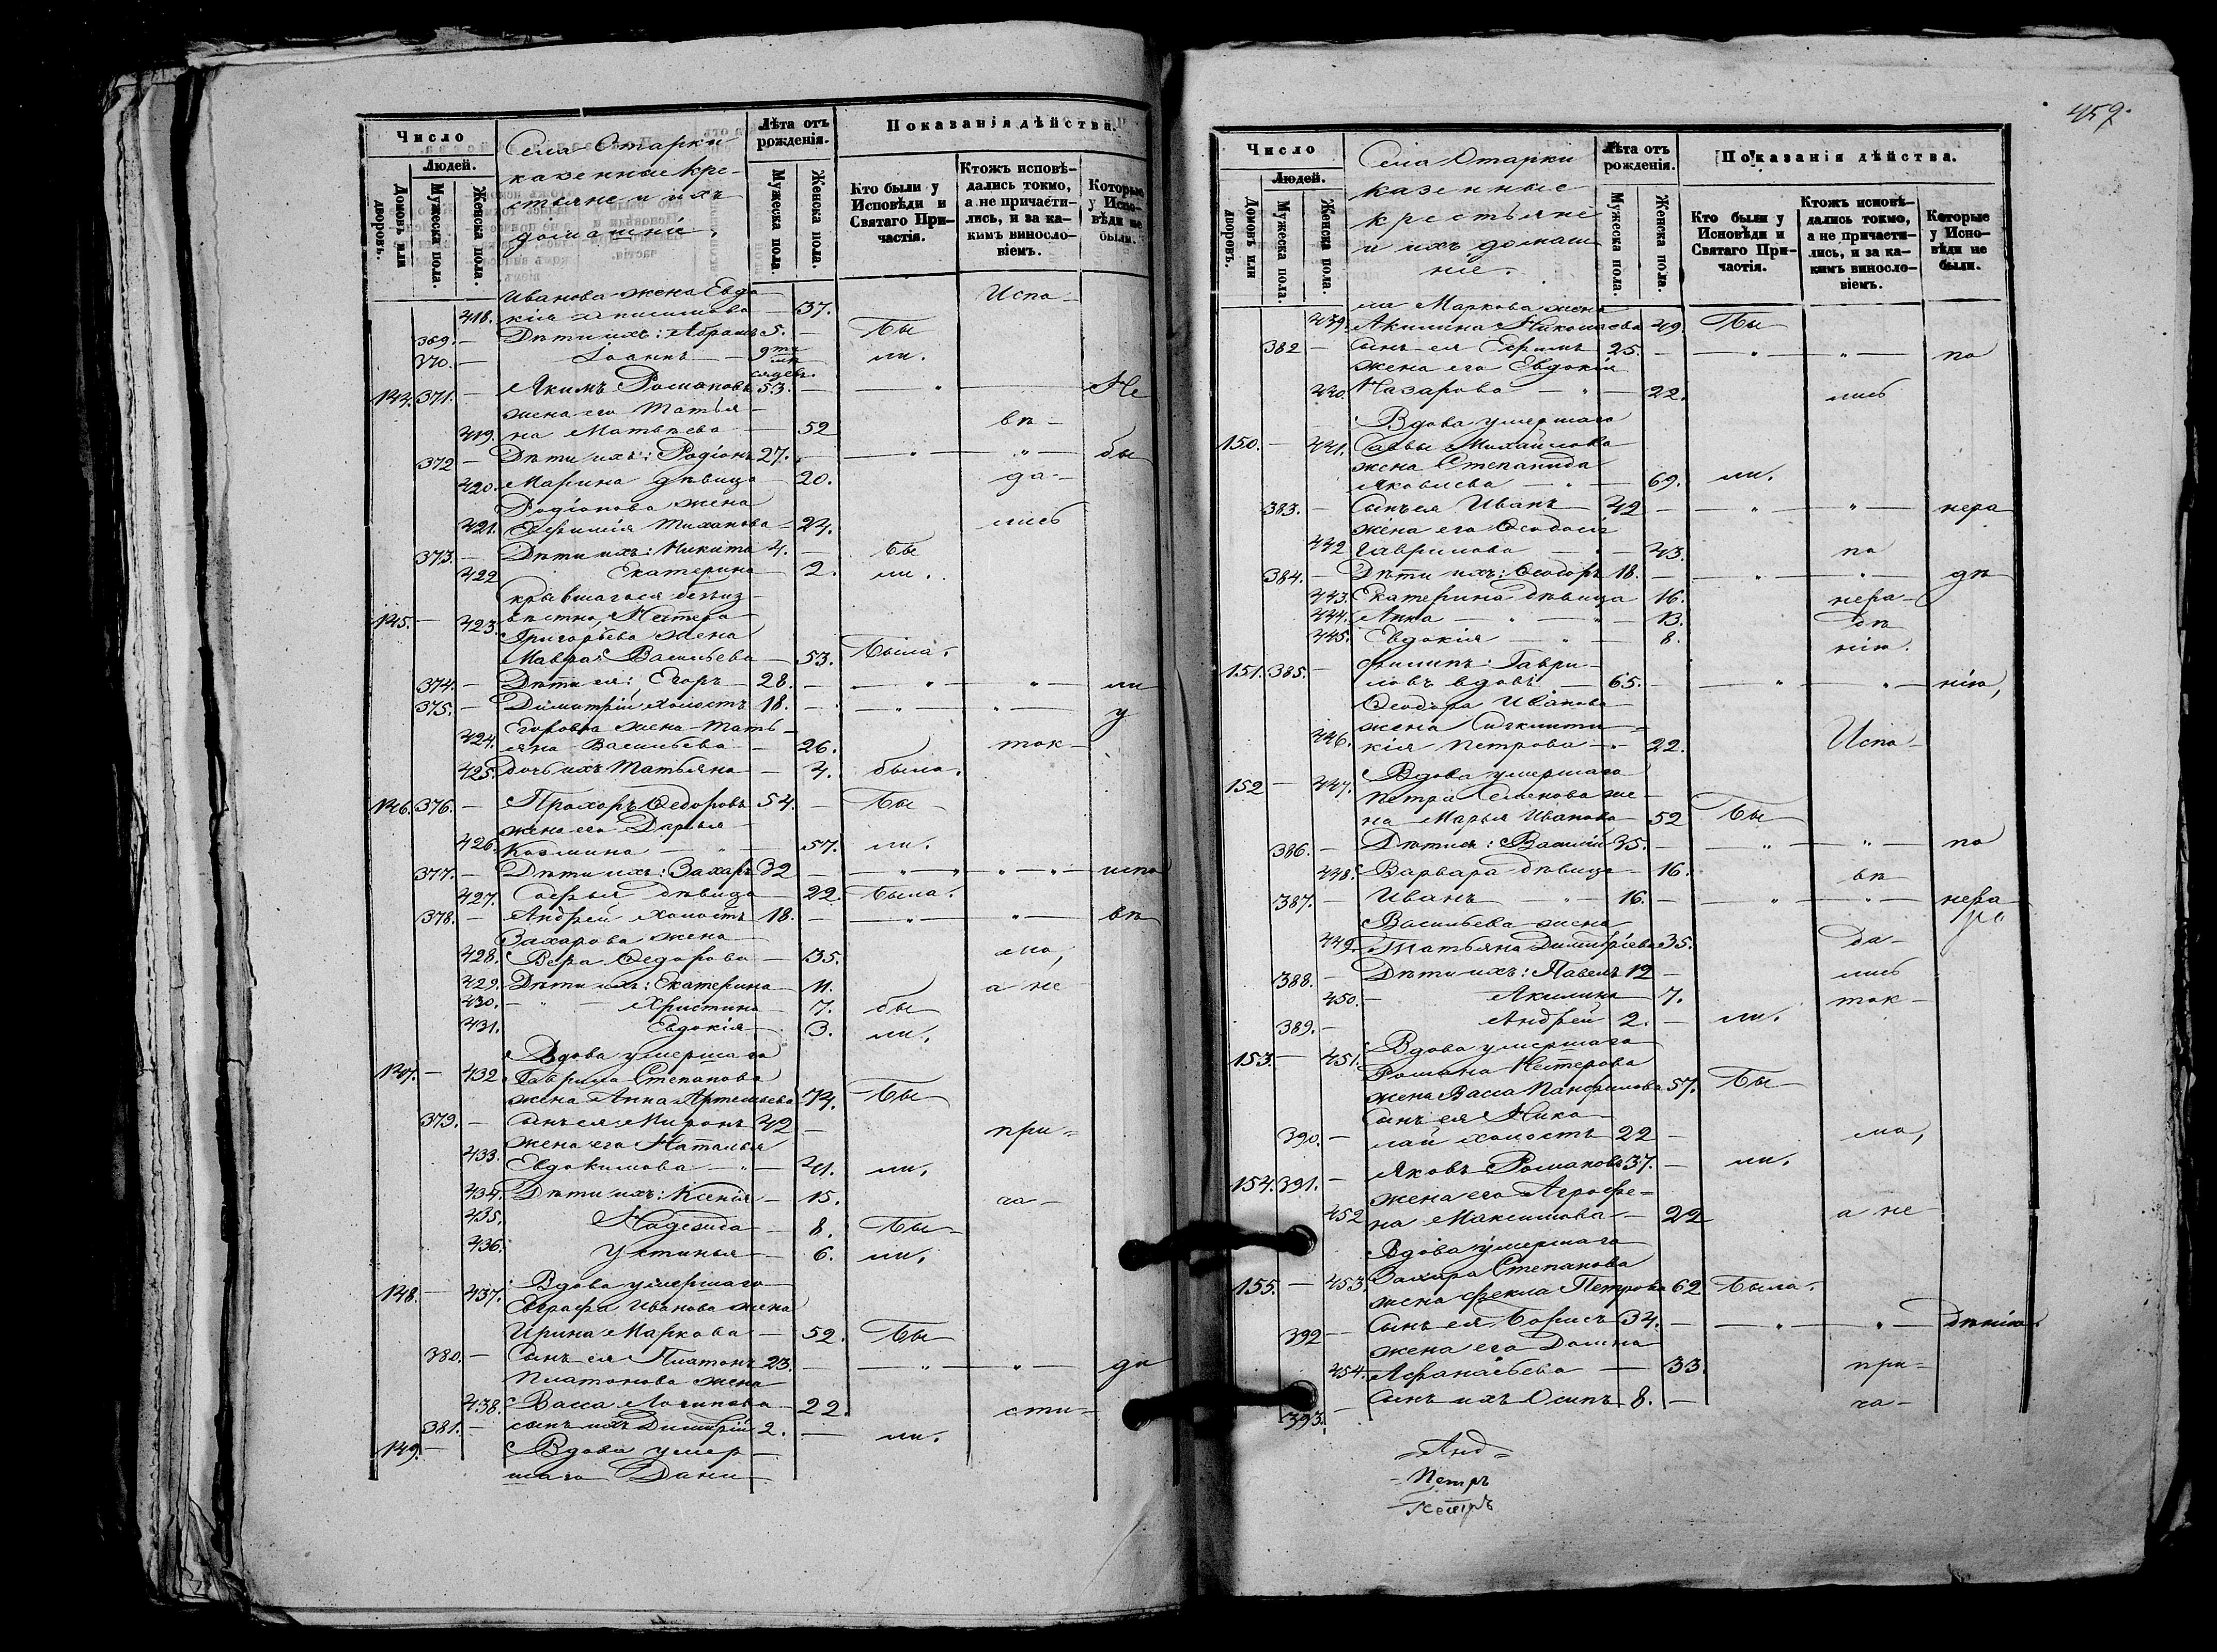 Число
Людей.
Домовъ или дворовъ.
Мужеска пола.
Женска пола.
Села Отарки
казенные кре-
стьяне и ихъ
домашніе.
Лѣта отъ рожденія.
Мужеска пола.
Женска пола.
Показанія дѣйства.
Кто были у Исповѣди и Святаго При-частія.
Ктожъ исповѣ-дались токмо, а не причасти-лись, и за ка-кимъ винсло-віемъ.
Которые у Испо-вѣди не были.
Иванова жена Евдо-
418. кія 37. Испо-
369. — Дѣти ихъ: Абрамъ 5. — Бы
370. — Іоаннъ — 9ти ли.
144. 371. — Якимъ Романовъ 53. — Не
жена его Татья-
419. на Матвѣева — 52 вѣ-
372 — Дѣти ихъ: Родіонъ 27. — бы
420. Марина дѣвица — 20. да-
Родіонова жена
421. Евфимія Тихонова — 24. лись
373. — Дѣти ихъ: Никита 4. — Бы
422 Екатерина — 2. ли.
Скрывшагося безъиз-
145. — 423. вѣстно, Нестера
Григорьева жена
Мавра Васильева — 53. Была.
374. — Дѣти ея: Егоръ 28. — ли
375. — Димитрій холостъ 18. — у
Егорова жена Тать-
424. яна Васильева — 26. ток-
425. дочь ихъ Татьяна — 4. была.
146. 376. — Прохоръ Ѳедоровъ 54. — Бы
жена его Дарья
426. Козмина — 57. ли.
377. — Дѣти ихъ: Захаръ 32 — испо
427. Софья дѣвица — 22. Была.
378. — Андрей холостъ 18. — вѣ
Захарова жена
428. Вера Ѳедорова — 35. мо,
429. Дѣти ихъ: Екатерина — 11. а не
430. Христина — 7. бы
431. Евдокія — 3. ли.
Вдова умершаго
147. — 432 Гаврила Степанова
жена Анна Артемьева 74. Бы
379. — сынъ ея Миронъ 42 — при-
жена его Наталья
433. Евдокимова — 41. ли,
434. Дѣти ихъ: Ксенія — 15. ча-
435. Надежда — 8. Бы-
436. Устинья — 6. ли,
148. — 437. Вдова умершаго
Евграфа Иванова жена
Ирина Маркова — 52. Бы
380. — Сынъ ея Платонъ 23. — ди
Платонова жена
438. Васса Логинова — 22. сти-
381. — сынъ ихъ Димитрій 2. — ли.
149. — Вдова умер-
шаго Дани-
457.
Число
Людей.
Домовъ или дворовъ.
Мужеска пола.
Женска пола.
Села Отарки
казенные
крестьяне
и ихъ домаш
ніе.
Лѣта отъ рожденія.
Мужеска пола.
Женска пола.
Показанія дѣйства.
Кто были у Исповѣди и Святаго При-частія.
Ктожъ исповѣ-дались токмо, а не причасти-лись, и за ка-кимъ винсло-віемъ.
Которые у Испо-вѣди не были.
ла Маркова жена
439. Акилина Николаева 49. Бы
382 — Сынъ ея Ефимъ 25. — по
жена его Евдокія
440. Назарова — 22. лись
Вдова умершаго
150. — 441. Саввы Михайлова
жена Степанида
Яковлева — 69. ли.
383. — Сынъ ея Иванъ 42 — нера
жена его Ѳеодосія
442 Гаврилова — 43. по
384. — Дѣти ихъ: Ѳеодоръ 18. — дѣ
443. Екатерина дѣвица 16. нера-
444. Анна — 13. дѣ
445. Евдокія — 8. нію.
151. 385. — Филипъ Гаври-
ловъ вдовъ — 65. — нію,
Ѳеодора Иванова
жена
446. кія Петрова — 22. Испо-
Вдова умершаго
152 — 447. Петра Семенова же-
на Марья Иванова 52 Бы
386. — Дѣти ея: Василій 35. — по
448. Варвара дѣвица — 16. вѣ
387. — Иванъ — 16. — нера
Васильева жена
449. Татьяна Димитріева 35. да-
388. — Дѣти ихъ: Павелъ 12 — лись
450. — Акилина 7. ток-
389. — Андрей 2. — ли.
Вдова умершаго
153. — 451. Романа Нестерова
жена Васса Панфилова 57. Бы
Сынъ ея Нико-
390. — лай холостъ 22 — мо,
154. 391. — Яковъ Романовъ 37. — ли.
жена его Агрофе-
452 на Максимова — 22 а не
Вдова умершаго
155. — 453. Захара Степанова
жена Фекла Петрова 62 Была.
392 — Сынъ ея Борисъ 34. — дѣнію.
жена его Домна
454. Афанасьева — 33. при-
393. — Сынъ ихъ Осипъ 8. — ча-
Анд
Петръ